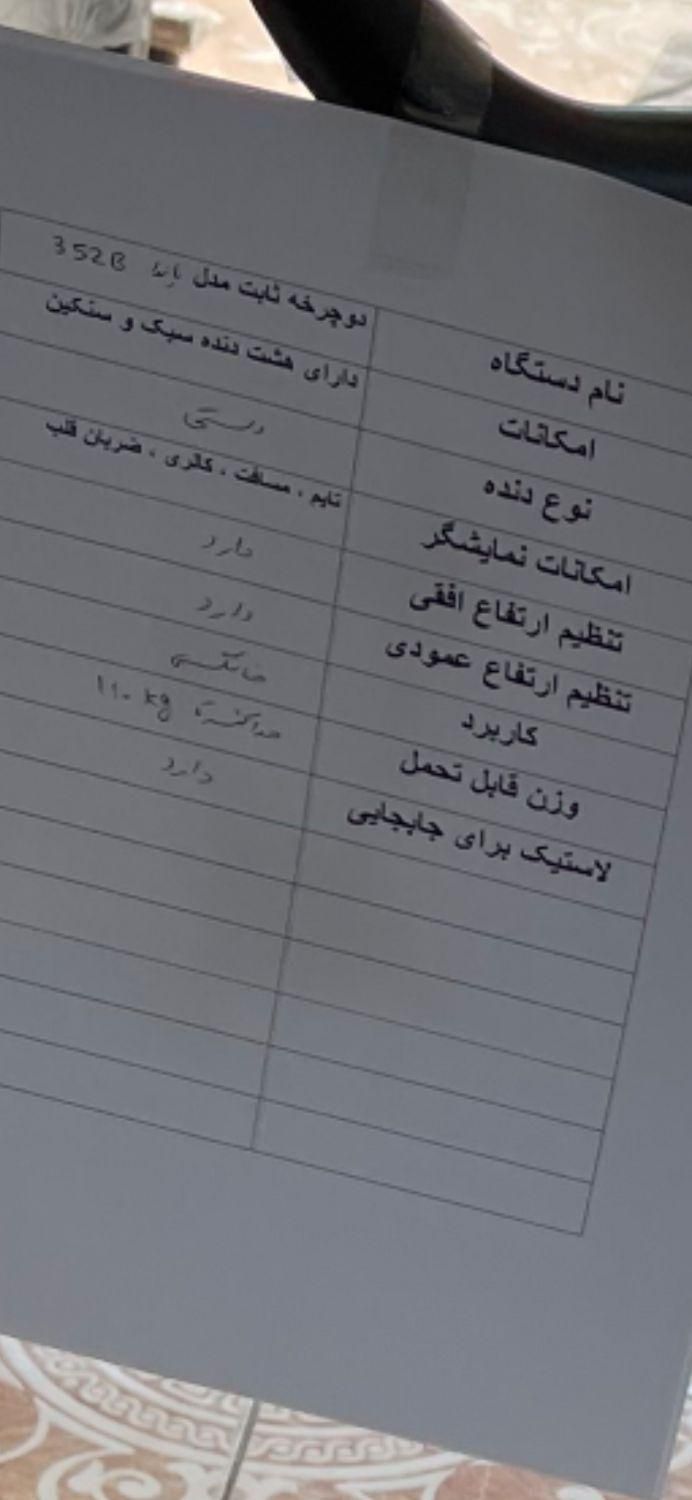 نام دستگاه دوچرخه ثابت مدل 352B
امکانات دارای هشت دنده سبک و سنگین
نوع دنده دستی
امکانات نمایشگر تایم ، مسافت ، کالری ، ضربان قلب
تنظیم ارتفاع افقی دارد
تنظیم ارتفاع عمودی دارد
کاربرد خانگی
وزن قابل تحمل حداکثر تا ۱۱۰ kg
لاستیک برای جابجایی دارد